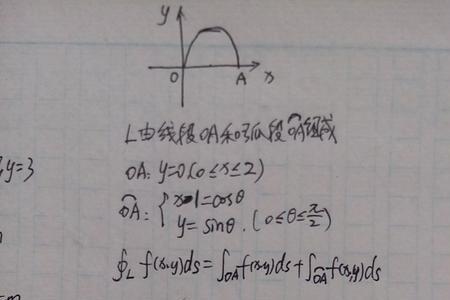 y
O A x
L由线段OA和弧段OA组成
y=3
OA: y=0(0≤x≤2)
OA: { x-1=cosθ
y=sinθ. (0≤θ≤π/2)
∮_L f(x,y)ds=∫_OA f(x,y)ds+∫_OA f(x,y)ds